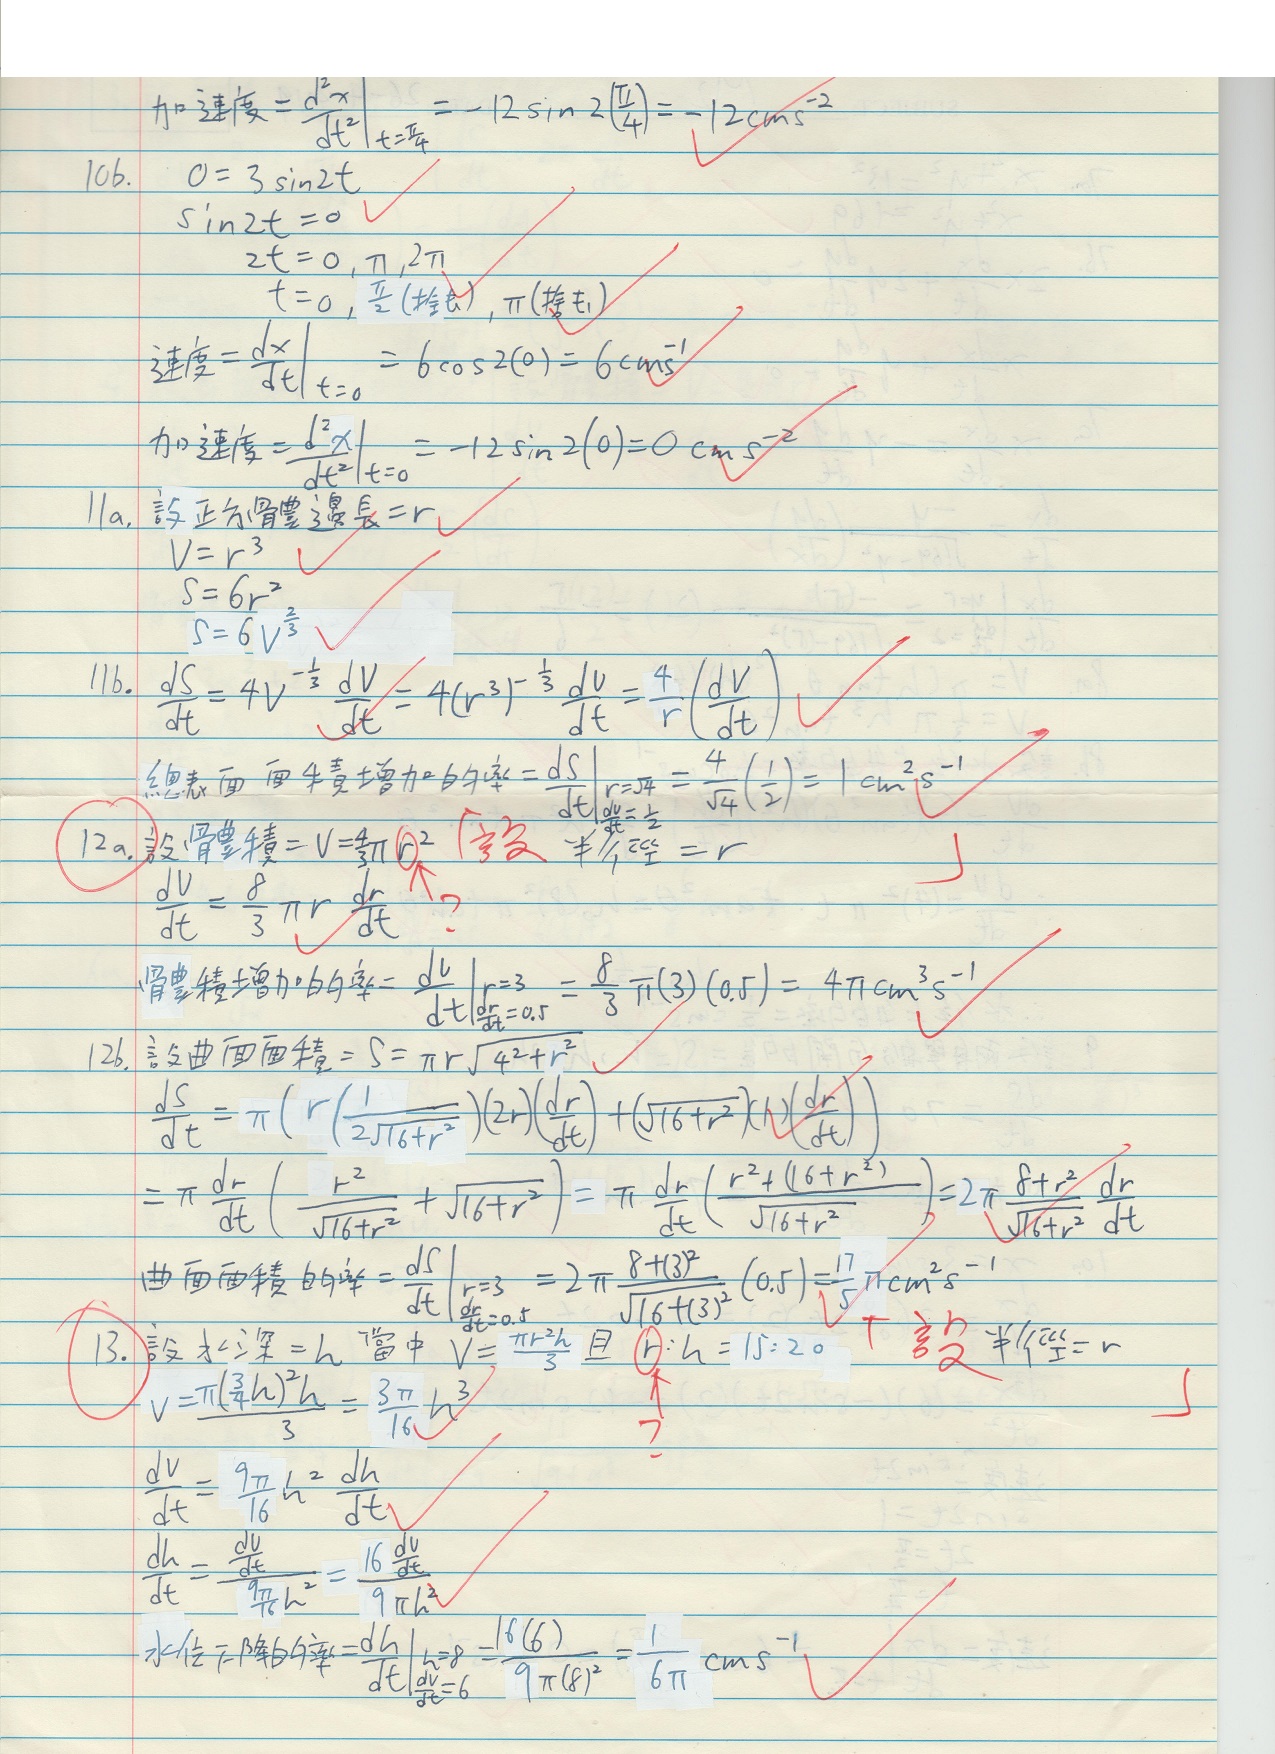 加速度 = d²x/dt² | t=π/4 = -12 sin 2(π/4) = -12 cms⁻²
10b. 0 = 3 sin2t
sin2t = 0
2t = 0, π, 2π
t = 0, π/2 (捨去), π (捨去)
速度 = dx/dt | t=0 = 6cos2(0) = 6cms⁻¹
加速度 = d²x/dt² | t=0 = -12 sin2(0) = 0 cms⁻²
11a. 設正方體邊長 = r
V = r³
S = 6r²
S = 6V^(2/3)
11b. dS/dt = 4V^(-1/3) dV/dt = 4(r³)^(-1/3) dV/dt = 4/r (dV/dt)
總表面面積增加的率 = dS/dt | r=√4, dV/dt=1/2 = 4/√4 (1/2) = 1 cm²s⁻¹
12a. 設體積 = V = 4/3 π r² 「設 半徑 = r 」
dV/dt = 8/3 πr dr/dt ?
體積增加的率 = dV/dt | r=3, dr/dt=0.5 = 8/3 π(3)(0.5) = 4π cm³s⁻¹
12b. 設曲面面積 = S = πr√(4²+r²)
dS/dt = π(r(1/(2√(16+r²)))(2r)(dr/dt) + (√(16+r²))(1)(dr/dt))
= π dr/dt (r²/√(16+r²) + √(16+r²)) = π dr/dt ((r²+(16+r²))/√(16+r²)) = 2π (8+r²)/√(16+r²) dr/dt
曲面面積的率 = dS/dt | r=3, dr/dt=0.5 = 2π (8+(3)²)/√(16+(3)²) (0.5) = 17/5 π cm²s⁻¹
13. 設水深 = h 當中 V = πr²h/3 且 r:h = 15:20 「設 半徑 = r 」
V = π(3/4 h)²h/3 = 3π/16 h³ ?
dV/dt = 9π/16 h² dh/dt
dh/dt = (dV/dt)/(9π/16 h²) = (16 dV/dt)/(9πh²)
水位下降的率 = dh/dt | h=8, dV/dt=6 = 16(6)/(9π(8)²) = 1/(6π) cms⁻¹